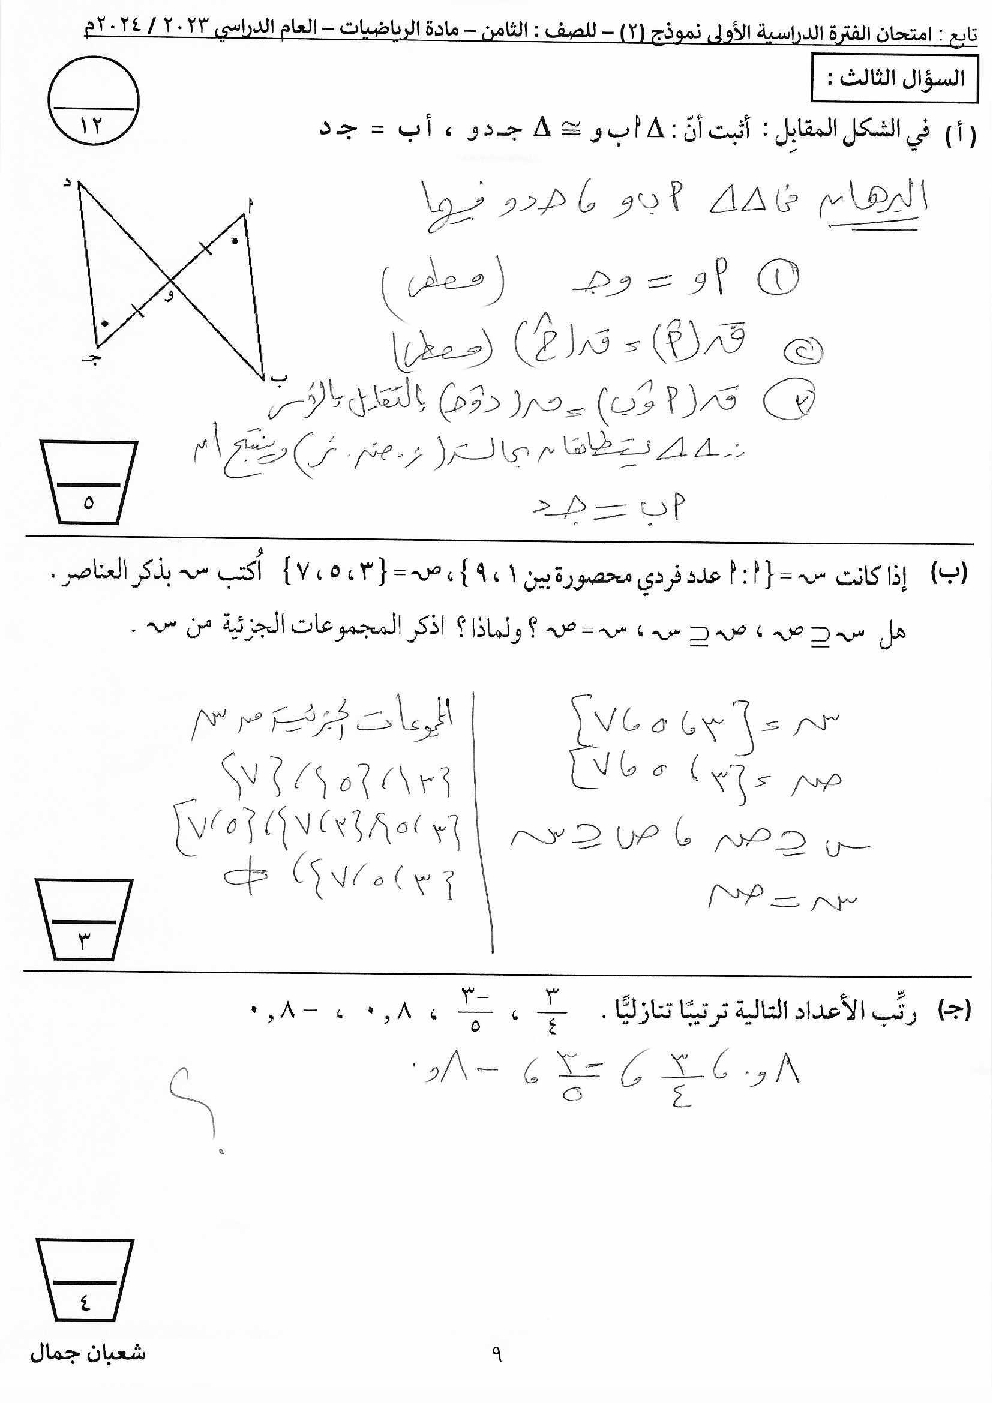 تابع : امتحان الفترة الدراسية الأولى نموذج (٢) – للصف : الثامن – مادة الرياضيات – العام الدراسي ٢٠٢٣ / ٢٠٢٤م
السؤال الثالث :
١٢
(أ) في الشكل المقابل : أثبت أنّ : Δ أ ب و ≅ Δ جـ د و ، أ ب = جـ د
البرهان في ΔΔ أ ب و ، جـ د و فيها
د
أ
و
جـ
ب
١ أ و = و جـ (معطى)
٢ ق(أ) = ق(جـ) (معطى)
٣ ق(أ و ب) = ق(د و جـ) بالتقابل بالرأس
∴ ΔΔ يتطابقان بحالة (ز . ض . ز) وينتج أن
أ ب = جـ د
٥
(ب) إذا كانت س = {أ : أ عدد فردي محصورة بين ١ ، ٩} ، ص = {٣ ، ٥ ، ٧} أُكتب س بذكر العناصر .
هل س ⊆ ص ، ص ⊆ س ، س = ص ؟ ولماذا ؟ اذكر المجموعات الجزئية من س .
س = {٣ ، ٥ ، ٧}
ص = {٣ ، ٥ ، ٧}
س ⊆ ص ، ص ⊆ س
س = ص
المجموعات الجزئية من س
{٣} ، {٥} ، {٧}
{٣ ، ٥} ، {٣ ، ٧} ، {٥ ، ٧}
{٣ ، ٥ ، ٧} ، ф
٣
(جـ) رتِّب الأعداد التالية ترتيبًا تنازليًّا . ٣/٤ ، -٣/٥ ، ٠,٨ ، -٠,٨
٠,٨ ، ٣/٤ ، -٣/٥ ، -٠,٨
؟
٤
٩
شعبان جمال